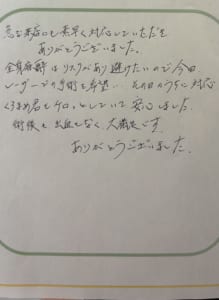 急な来店にも素早く対応していただき
ありがとうございました。
全身麻酔はリスクがあり避けたいので今回
レーザーでの手術を希望し、その日のうちに対応
くるみ君もケロッとしていて安心しました。
術後も出血もなく、大満足です。
ありがとうございました。